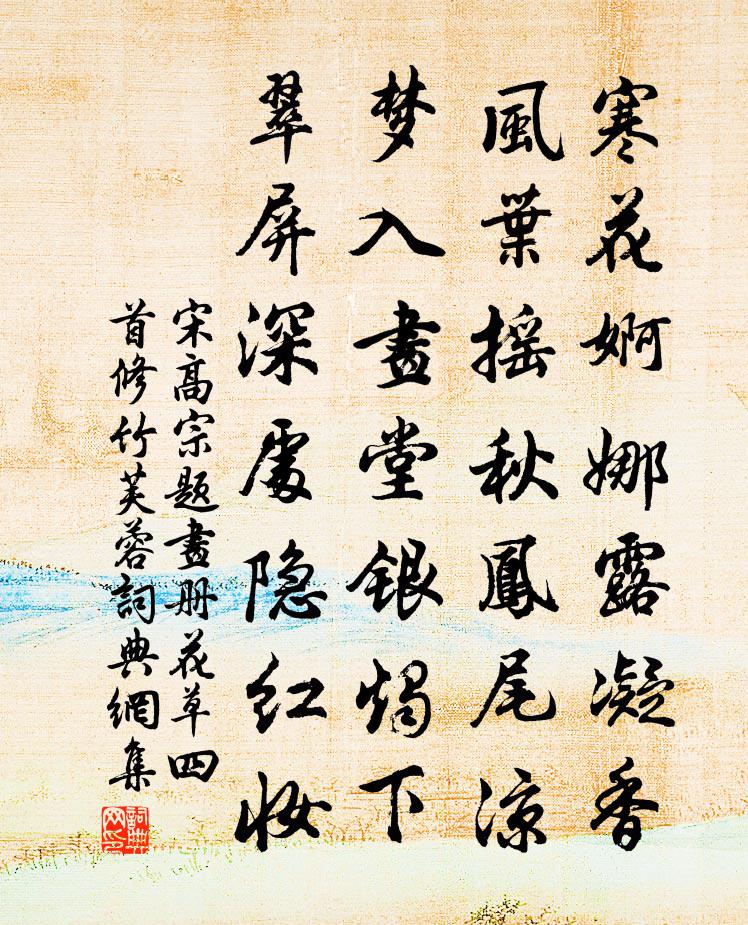 寒花婀娜露凝香
風葉摇秋鳳尾凉
梦入畫堂銀燭下
翠屏深處隐红妆
宋高宗题畫册花草四
首修竹芙蓉詞典網集
詞典
网印